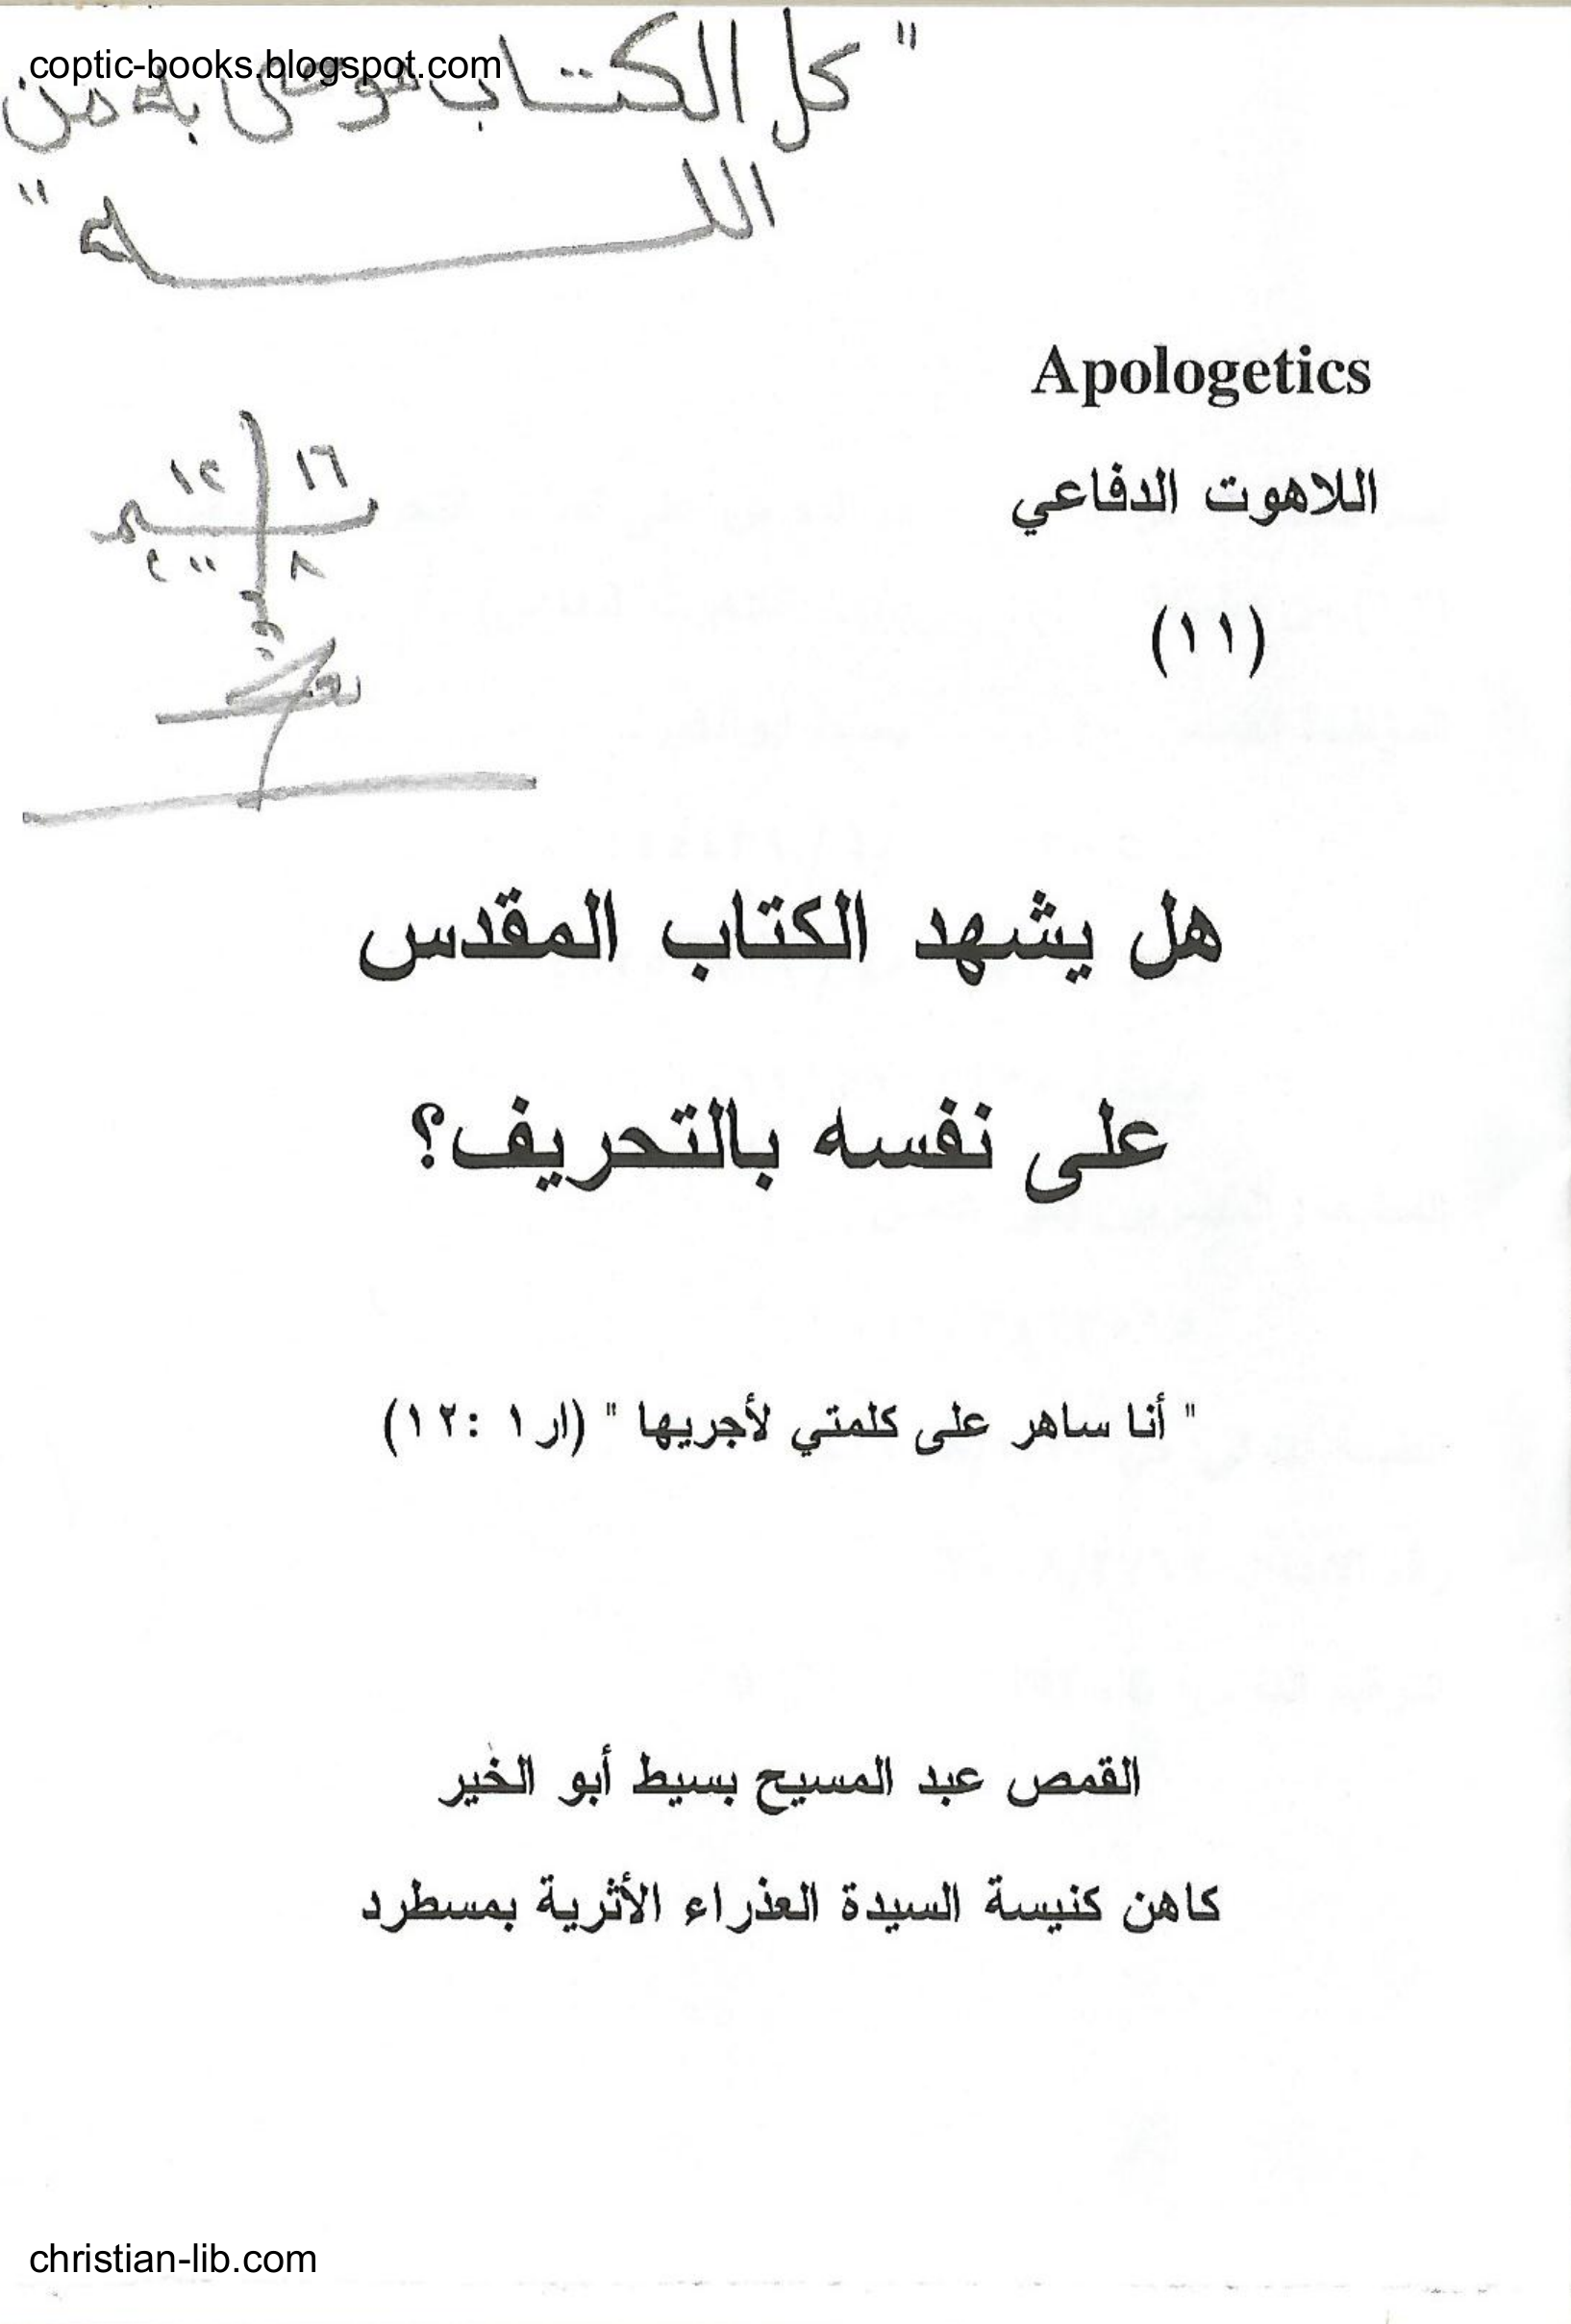 coptic-books.blogspot.com
" كل الكتاب موحى به من
الله "
Apologetics
اللاهوت الدفاعي
(١١)
١٦
١٢
٨
هل يشهد الكتاب المقدس
على نفسه بالتحريف؟
" أنا ساهر على كلمتي لأجريها " (ار١ :١٢)
القمص عبد المسيح بسيط أبو الخير
كاهن كنيسة السيدة العذراء الأثرية بمسطرد
christian-lib.com